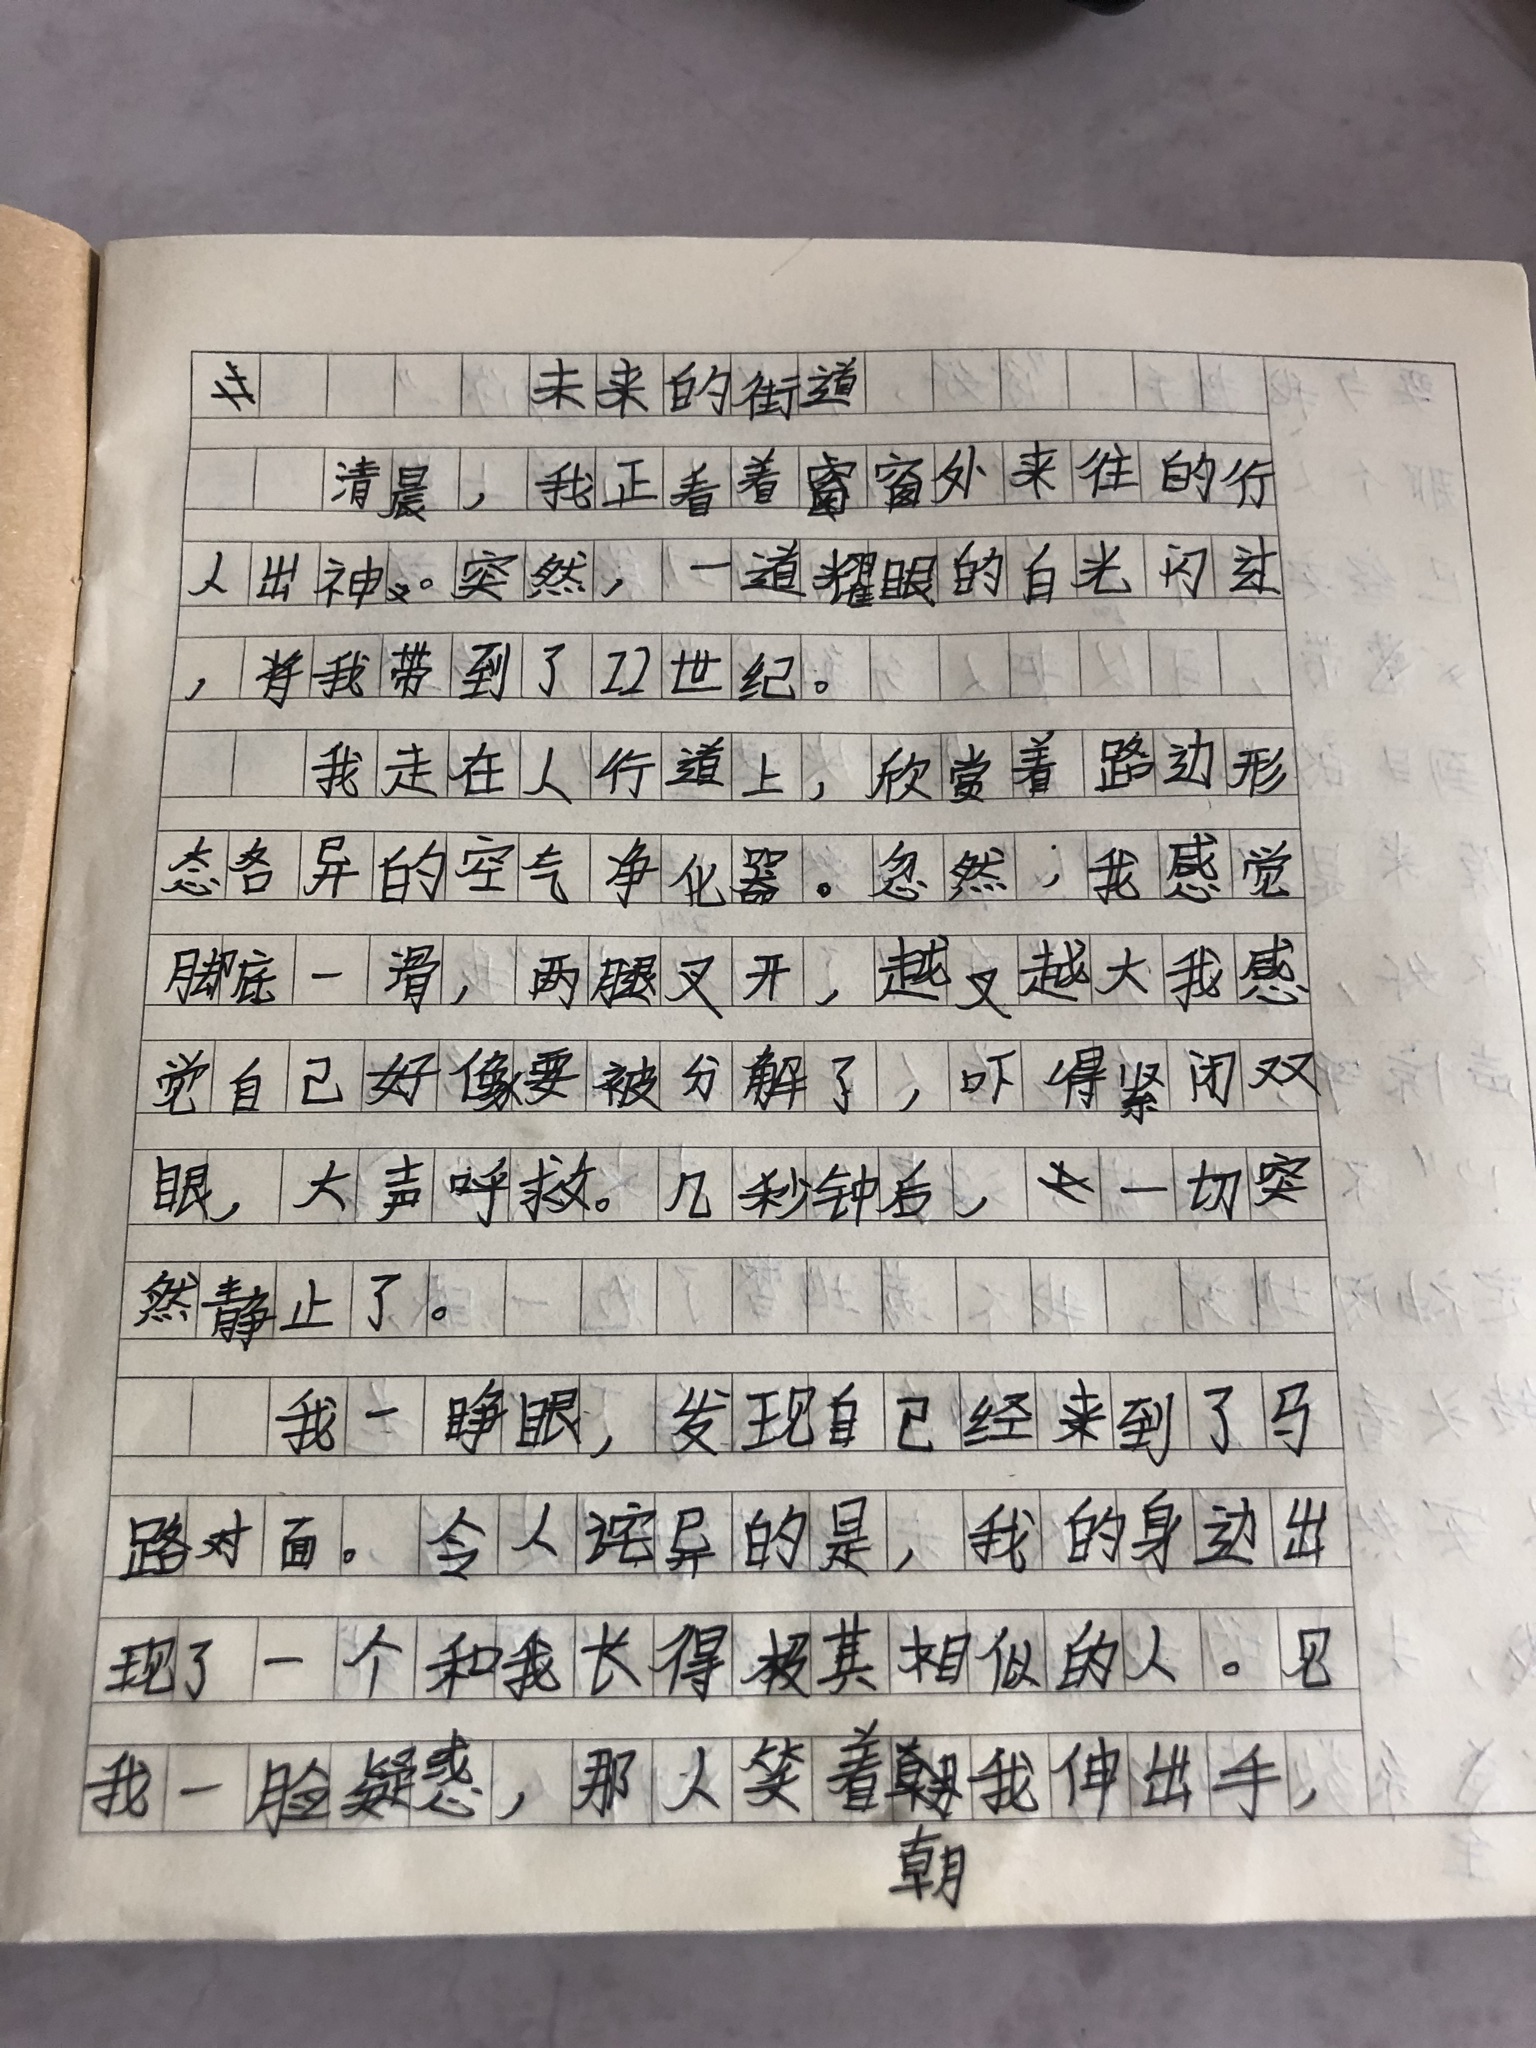 未来的街道
清晨，我正看着窗外来往的行
人出神。突然，一道耀眼的白光闪过
，将我带到了22世纪。
我走在人行道上，欣赏着路边形
态各异的空气净化器。忽然，我感觉
脚底一滑，两腿叉开，越叉越大我感
觉自己好像要被分解了，吓得紧闭双
眼，大声呼救。几秒钟后，一切突
然静止了。
我一睁眼，发现自己经来到了马
路对面。令人诧异的是，我的身边出
现了一个和我长得极其相似的人。见
我一脸疑惑，那人笑着朝我伸出手，
朝